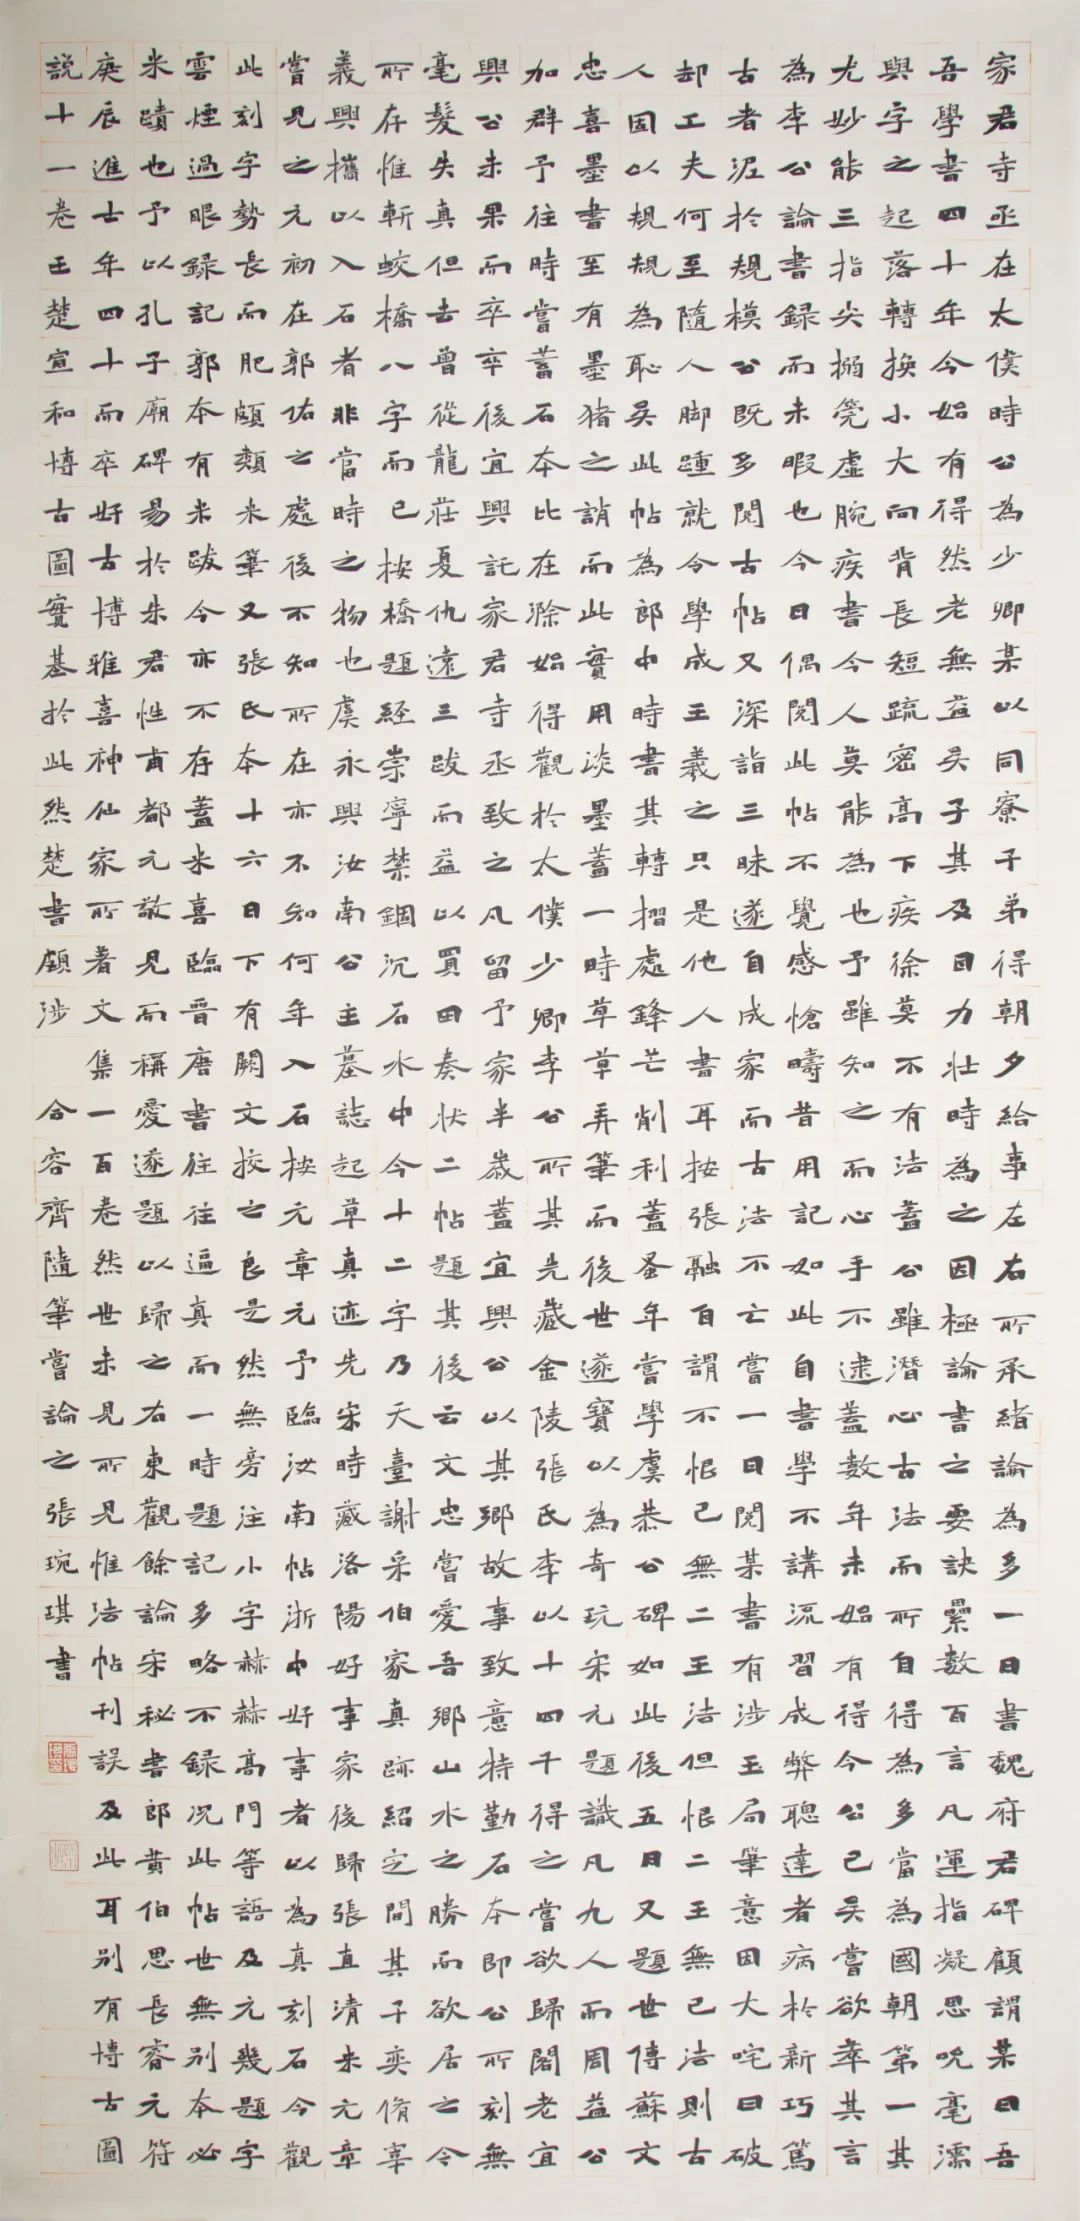 家君寺丞在太僕時公為少卿某以同寮子弟得朝夕給事左右所承緒論為多一日書魏府君碑顧謂某曰吾
吾學書四十年今始有得然老無益矣子其及目力壯時為之因極論書之要訣纍數百言凡運指凝思吮毫濡
與字之起落轉換小大向背長短疏密高下疾徐莫不有法蓋公雖潛心古法而所自得為多當為國朝第一其
尤妙能三指尖搦筦虛腕疾書今人莫能為也予雖知之而心手不逮蓋數年未始有得今公已矣嘗欲萃其言
為李公論書錄而未暇也今日偶閱此帖不覺感愴疇昔用記如此自書學不講流習成弊聰達者病於新巧篤
古者泥於規模公既多閱古帖又深詣三昧遂自成家而古法不亡嘗一日閱某書有涉玉局筆意因大咤曰破
却工夫何至隨人脚踵就令學成王羲之只是他人書耳按張融自謂不恨己無二王法但恨二王無己法則古
人固以規規為恥矣此帖為郎中時書其轉摺處鋒芒削利蓋蚤年嘗學虞恭公碑如此後五月又題世傳蘇文
忠喜墨書至有墨猪之誚而此實用淡墨蓋一時草草弄筆而後世遂寶以為奇玩宋元題識凡九人而周益公
加群予往時嘗蓄石本比在滁始得觀於太僕少卿李公所其先藏金陵張氏李以十四千得之嘗欲歸閣老宜
興公未果而卒卒後宜興託家君寺丞致之凡留予家半歲蓋宜興公以其鄉故事致意特勤石本即公所刻無
毫髮失真但去曾從龍莊夏仇遠三跋而益以買田奏狀二帖題其後云文忠嘗愛吾鄉山水之勝而欲居之今
所存惟斬蛟橋八字而已按橋題經崇寧禁錮沉石水中今十二字乃天臺謝采伯家真跡紹定間其子奕脩宰
義興攜以入石者非當時之物也虞永興汝南公主墓誌起草真迹先宋時藏洛陽好事家後歸張直清米元章
嘗見之元初在郭佑之處後不知所在亦不知何年入石按元章元予臨汝南帖浙中好事者以為真刻石今觀
此刻字勢長而肥頗類米筆又張氏本十六日下有闕文挍之良是然無旁注小字赫赫高門等語及元幾題字
雲煙過眼錄記郭本有米跋今亦不存蓋米喜臨晉唐書往往逼真而一時題記多略不錄況此帖世無別本必
米蹟也予以孔子廟碑易於朱君性甫都元敬見而稱愛遂題以歸之右東觀餘論宋秘書郎黃伯思長睿元符
庚辰進士年四十而卒好古博雅喜神仙家所著文集一百卷然世未見所見惟法帖刊誤及此耳別有博古圖
說十一卷王楚宣和博古圖實基於此然楚書頗涉 合容齊隨筆嘗論之張琬琪書